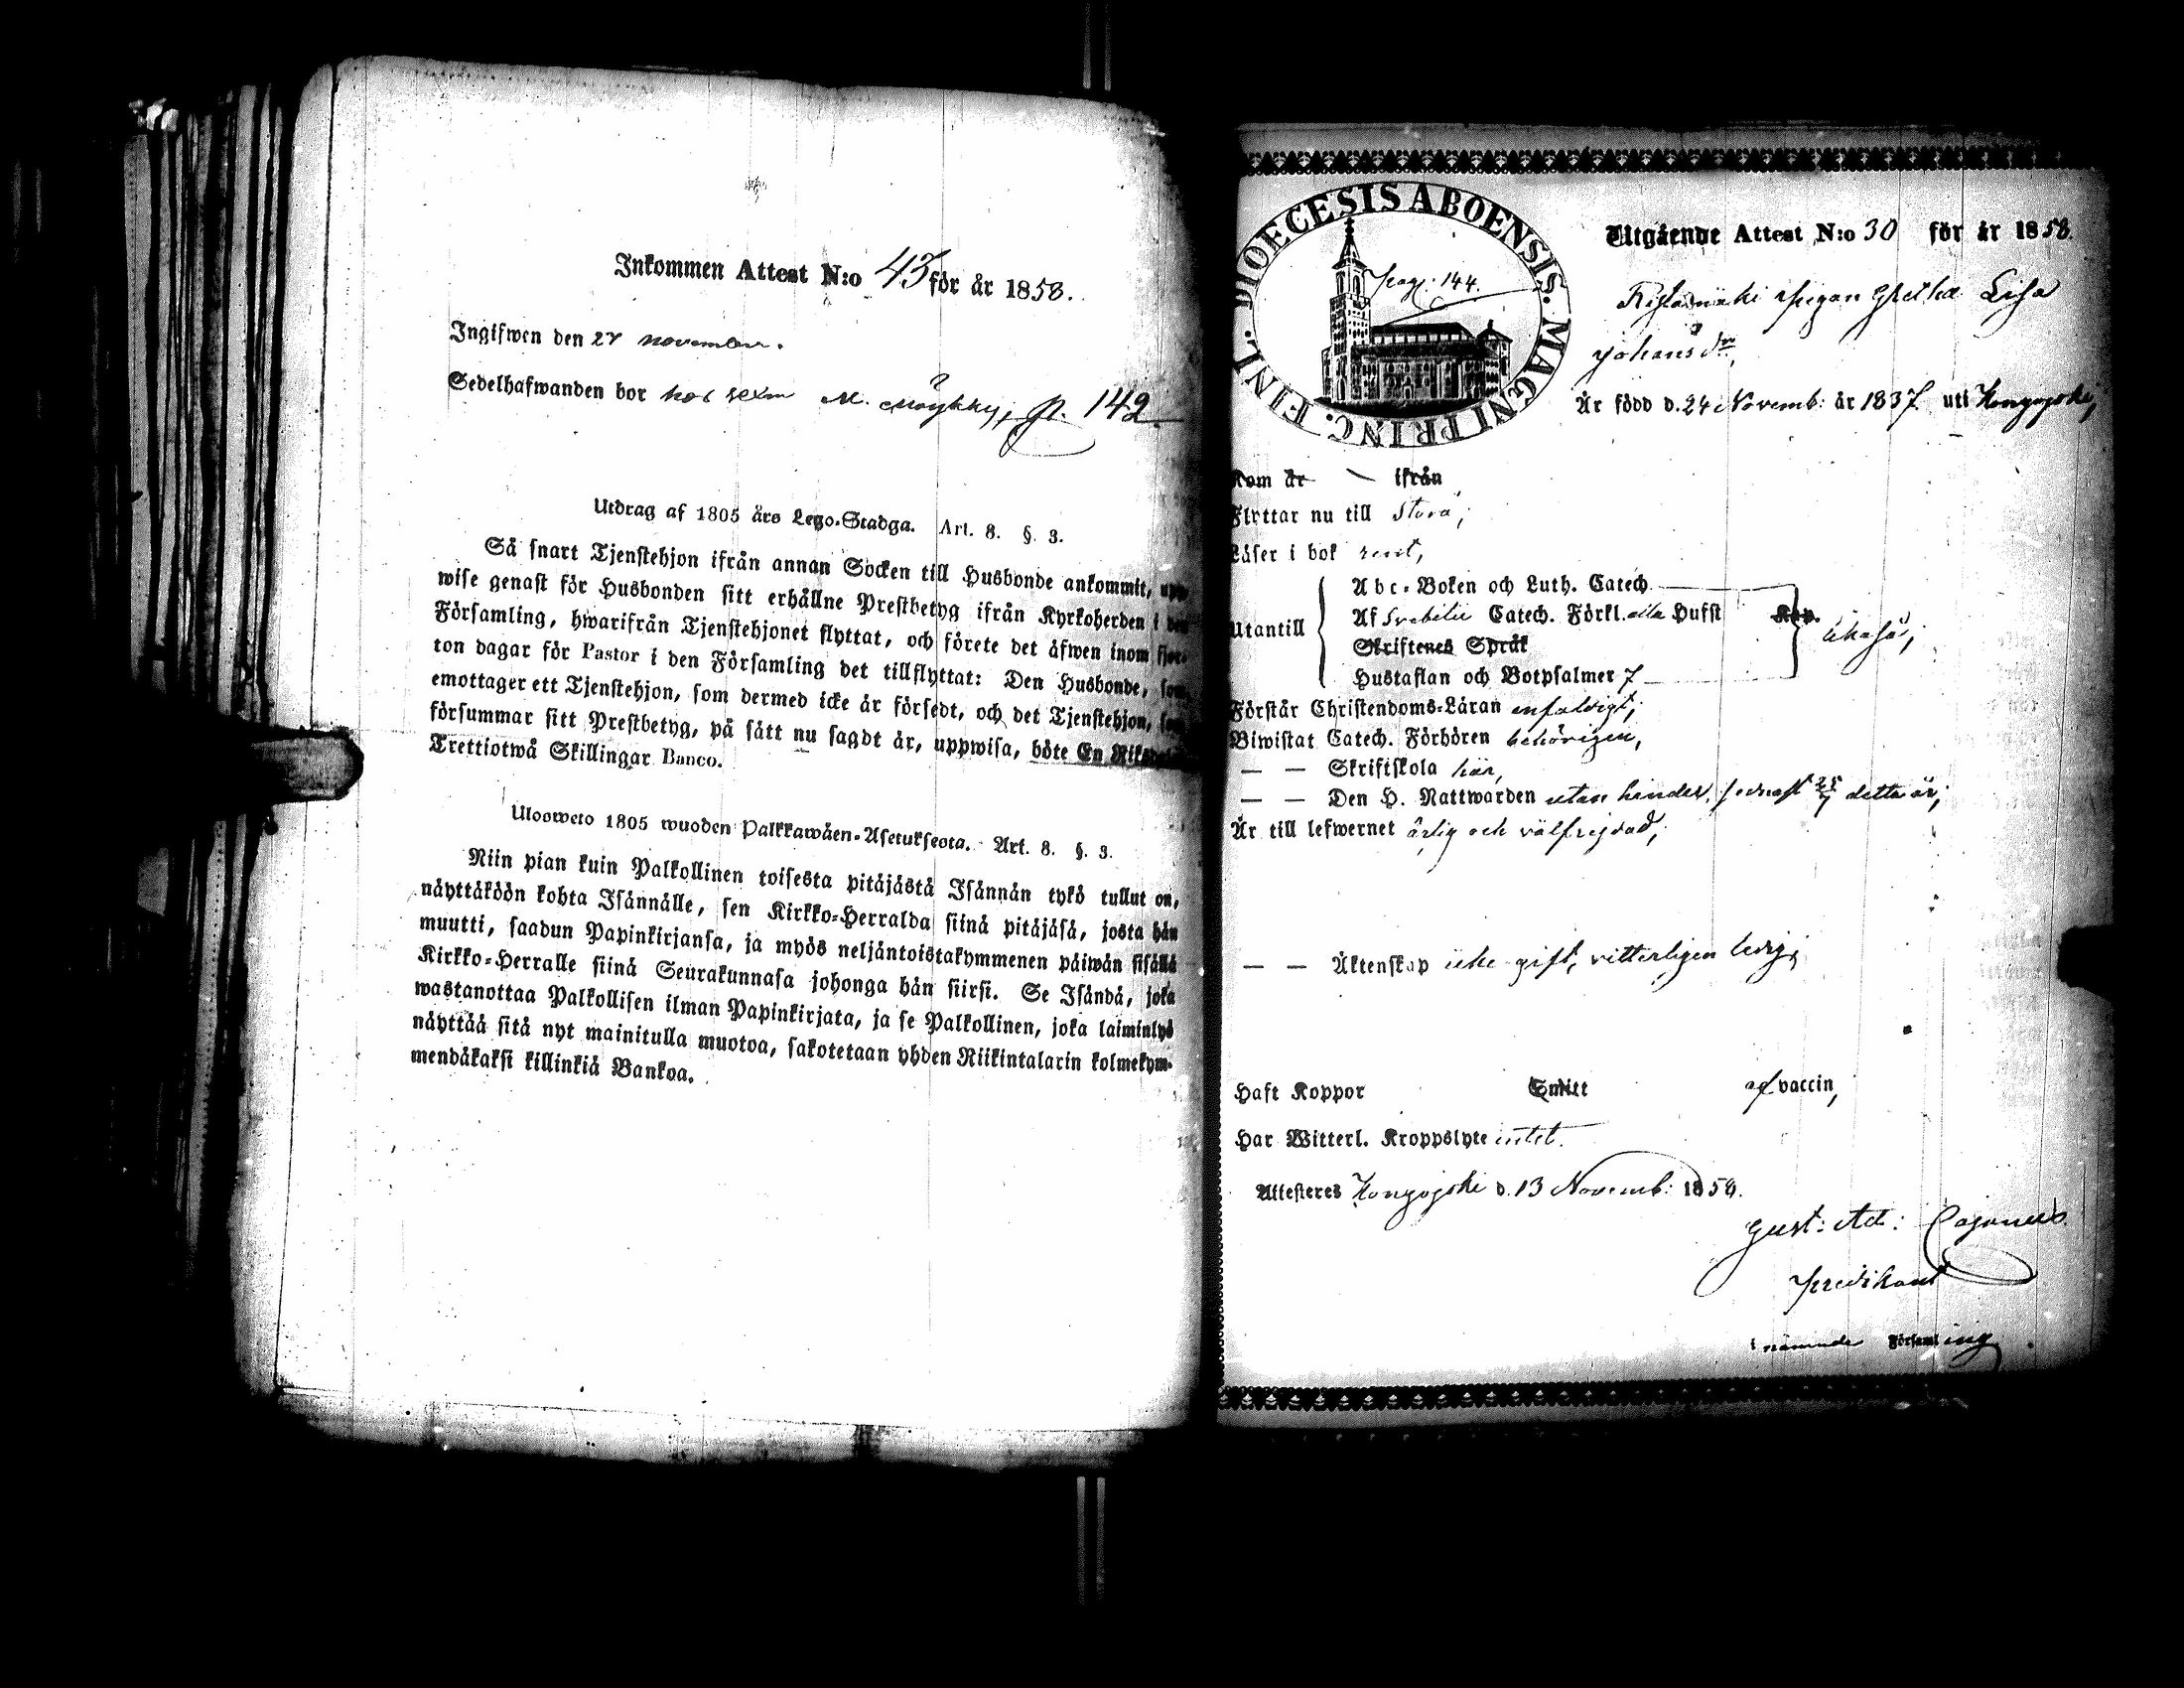 Inkommen Attest N:o 43 för år 1858.
Ingifwen den 27 november.
Sedelhafwanden bor hos sexm M. Möykky, p. 142.
Utdrag af 1805 års Lego-Stadga. Art. 8. §. 3.
Så snart Tjenstehjon ifrån annan Socken till Husbonde ankommit, upp-
wise genast för Husbonden sitt erhållne Prestbetyg ifrån Kyrkoherden i den
Församling, hwarifrån Tjenstehjonet flyttat, och förete det äfwen inom fjor-
ton dagar för Pastor i den Församling det tillflyttat: Den Husbonde, som
emottager ett Tjenstehjon, som dermed icke är försedt, och det Tjenstehjon, som
försummar sitt Prestbetyg, på sätt nu sagdt är, uppwisa, böte En Riksdaler
Trettiotwå Skillingar Banco.
Ulosweto 1805 wuoden Palkkawäen-Asetuksesta. Art. 8. §. 3.
Niin pian kuin Palkollinen toisesta pitäjästä Isännän tykö tullut on,
näyttäköön kohta Isännälle, sen Kirkko-Herralda siinä pitäjäsä, josta hän
muutti, saadun Papinkirjansa, ja myös neljäntoistakymmenen päiwän sisällä
Kirkko-Herralle siinä Seurakunnasa johonga hän siirsi. Se Isändä, joka
wastanottaa Palkollisen ilman Papinkirjata, ja se Palkollinen, joka laiminlyö
näyttää sitä nyt mainitulla muotoa, sakotetaan yhden Riikintalarin kolmekym-
mendäkaksi killinkiä Bankoa.
DIOECESIS ABOENSIS. MAGNI PRINC. FINL.
pag. 144.
Utgående Attest N:o 30 för år 1858.
Ristamäki pigan Greta Lisa
Johansdr,
Är född d. 24 Novemb: år 1837 uti Kongojoki,
Kom år ifrån
Flyttar nu till Storå,
Läser i bok rent,
Utantill
Abc-Boken och Luth. Catech.
Af Svebelii Catech. Förkl. alla Hufst Kap.
Skriftenes Språk
Hustaflan och Botpsalmer 7
ikasä,
Förstår Christendoms-Läran enfaldigt,
Biwistat Catech. Förhören behörigen,
— — Skriftskola här,
— — Den H. Nattwarden utan hinder, sednast 25/7 detta år,
Är till lefwernet ärlig och välfrejdad,
— — Äktenskap icke gift, vitterligen ledig,
Haft Koppor Smitt af vaccin,
Har Witterl. Kroppslyte intet.
Attesteres Kongojoki d. 13 Novemb: 1858.
Gust: Ad: Cajanus
predikant
i nämnde Församling